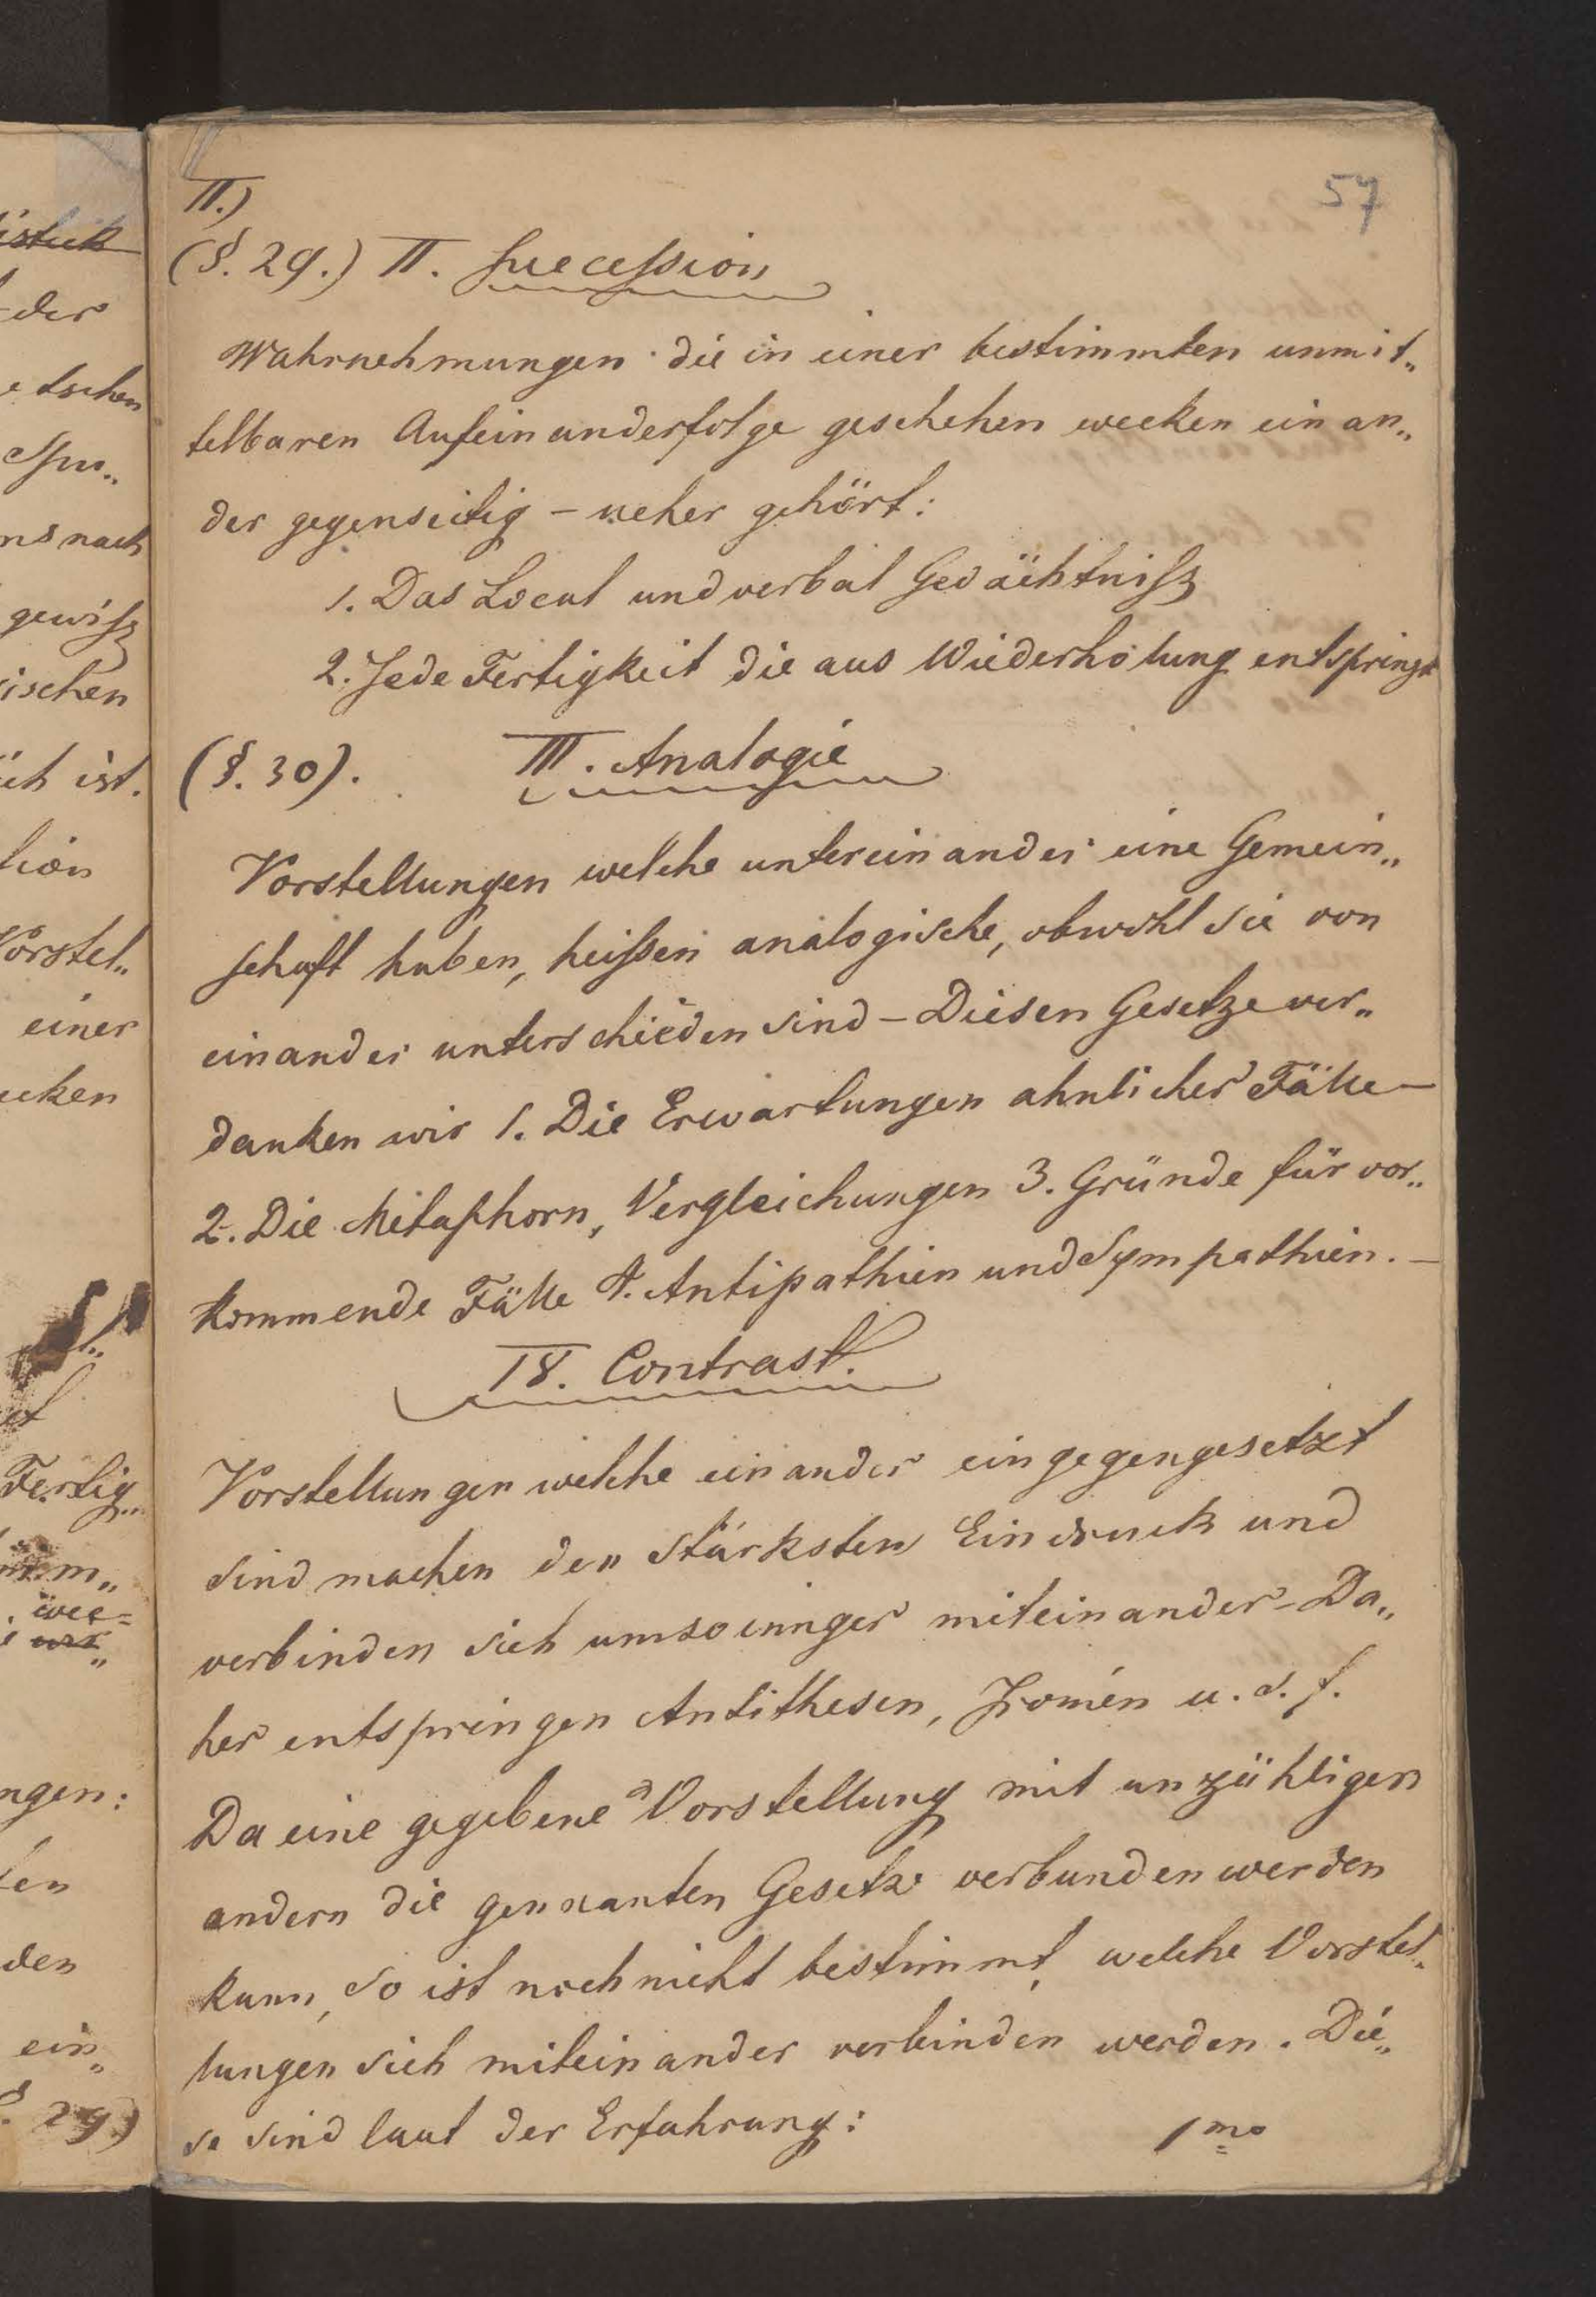 57
II.)
(§. 29.) II. Succession
Wahrnehmungen die in einer bestimmten unmit„
telbaren Aufeinanderfolge geschehen wecken ein an„
der gegenseitig – weher gehört:
1. Das Local und verbal Gedächtniß
2. Jede Fertigkeit die aus Wiederholung entspringt
(§. 30). III. Analogie
Vorstellungen welche untereinander eine Gemein„
schaft haben, heißen analogische, obwohl sie von
einander unterschieden sind – Diesen Gesetze ver„
danken wir 1. Die Erwartungen ahnlicher Fälle –
2. Die Metaphorn, Vergleichungen 3. Gründe für vor„
kommende Fälle 4. Antipathien und Sympathien. –
IV. Contrast.
Vorstellungen welche einander eingegengesetzt
sind machen den stärksten Eindruck und
verbinden sich umsoinnger miteinander – Da„
her entspringen Antithesen, Ironien u. s. f.
Da eine gegebene Vorstellung mit unzähligen
andern die gennanten Gesetze verbunden werden
kann, so ist noch nicht bestimmt, welche Vorstel„
lungen sich miteinander verbinden werden. Die„
se sind laut der Erfahrung:
1mo
istik
der
etschen
nach
gewiß
ischen
ich ist.
tion
Vorstel„
einer
ecken
Fertig„
ngen:
ten
den
ein„
§. 29)